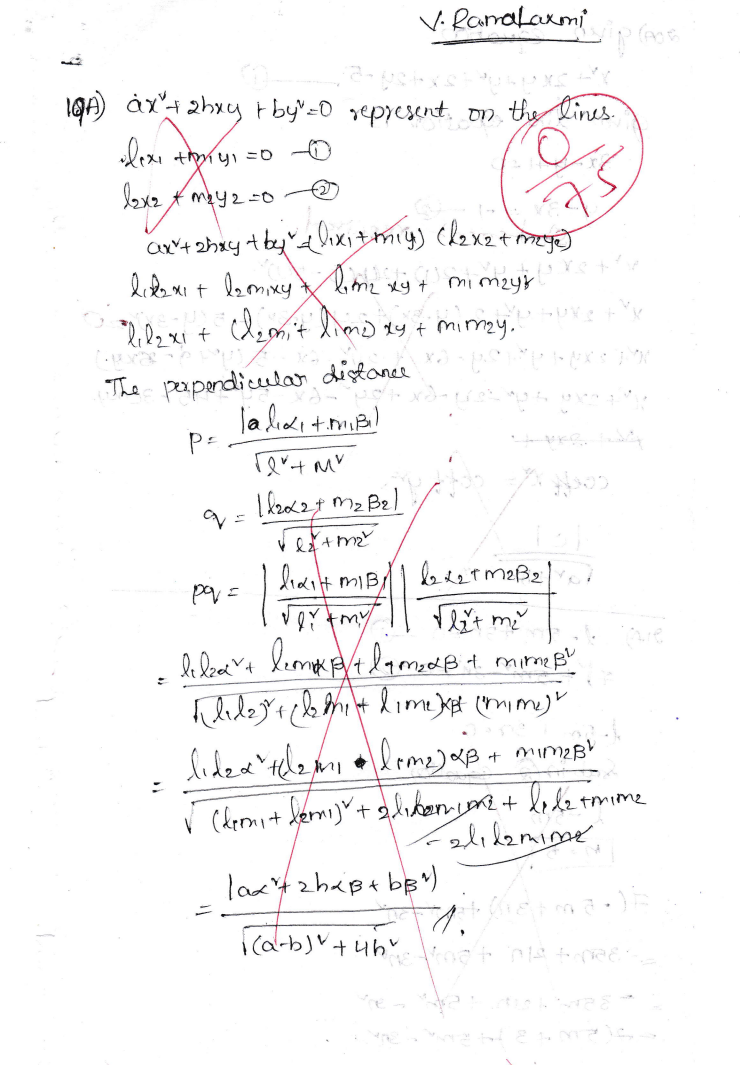 V. RamaLaxmi
19A) ax^v + 2hxy + by^v = 0 represent on the lines.
0/75
l1x1 + m1y1 = 0 —①
l2x2 + m2y2 = 0 —②
ax^v + 2hxy + by^v = (l1x1 + m1y1) (l2x2 + m2y2)
l1l2x1 + l2m1xy + l1m2 xy + m1m2y
l1l2x1 + (l2m1 + l1m2) xy + m1m2y.
The perpendicular distance
P = |a l1α1 + m1B1| / √l^v + M^v
q = |l2α2 + m2B2| / √l2^v + m2^v
pq = |l1α1 + m1B1 / √l1^v + m1^v| |l2α2 + m2B2 / √l2^v + m2^v|
= l1l2α^v + l2m1αβ + l1m2αB + m1m2B^v / √(l1l2)^v + (l2m1 + l1m2)αβ + (m1m2)^v
= l1l2α^v + (l2m1 l1m2)αβ + m1m2B^v / √(l1m1 + l2m1)^v + 2l1l2m1m2 + l1l2 + m1m2
- 2l1l2m1m2
= |aα^v + 2hαβ + bB^v) / √(a-b)^v + 4h^v